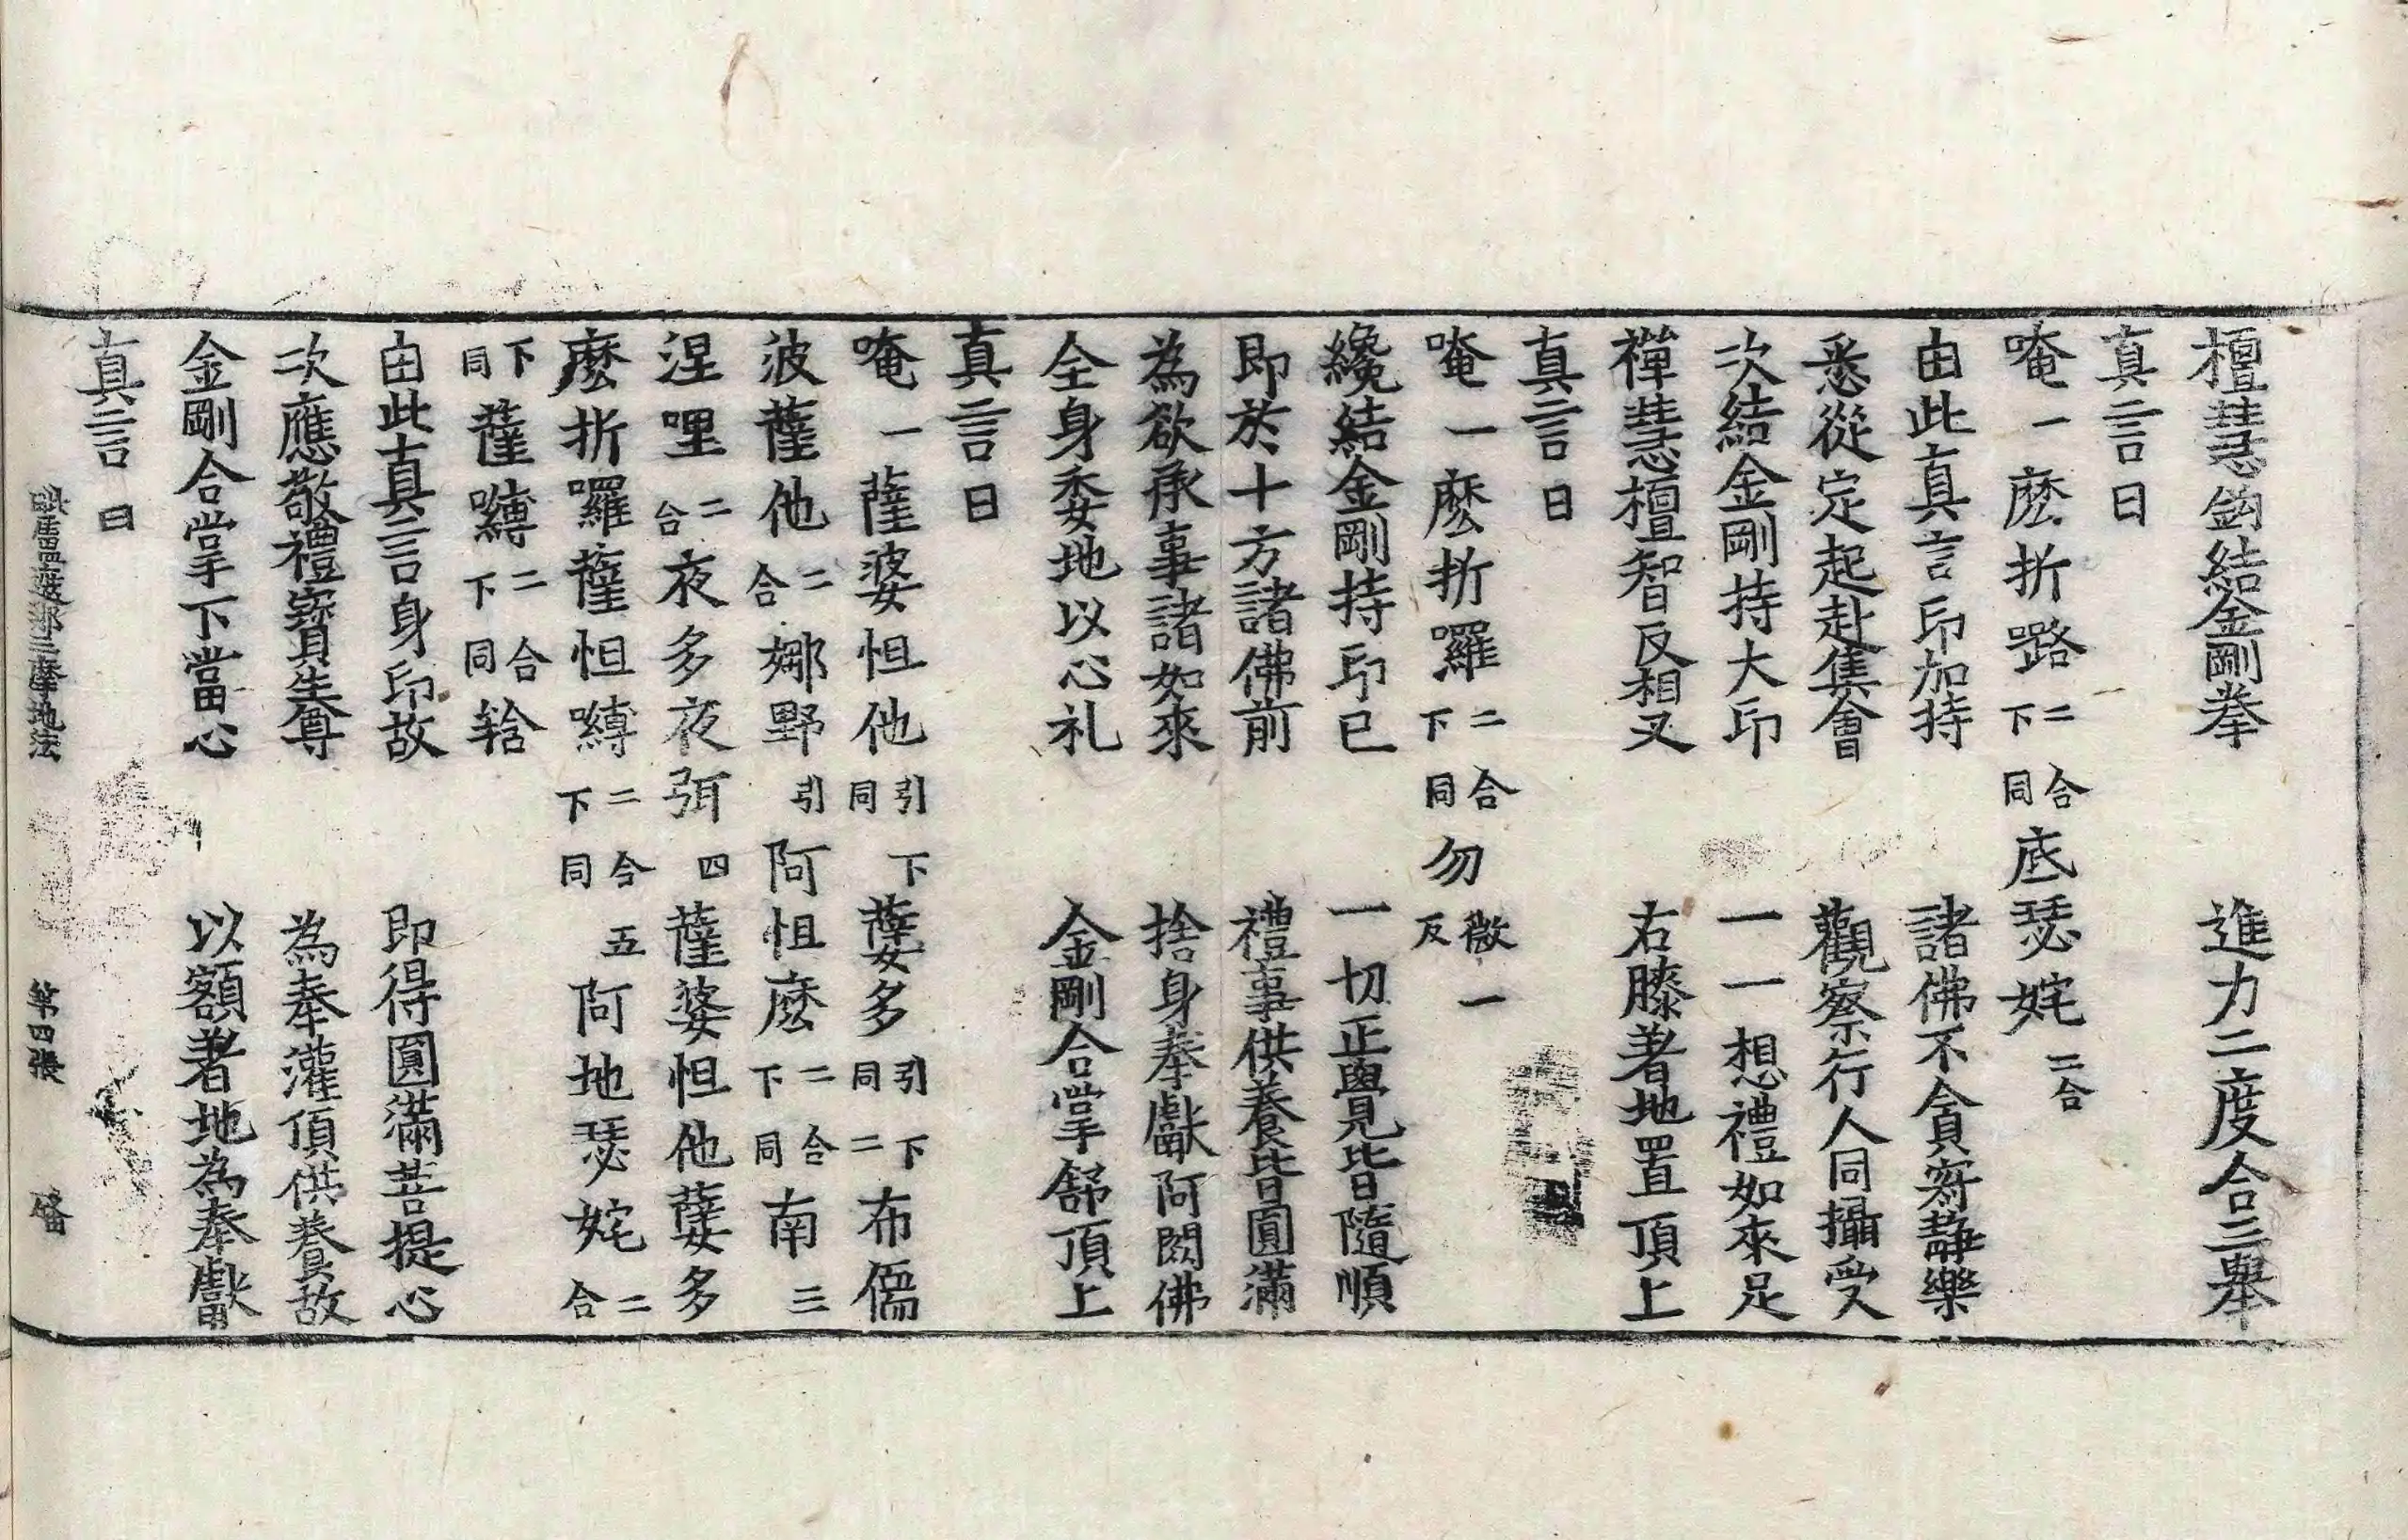 檀慧鉤結金剛拳　進力二度合三舉
真言曰
唵一麽折𡀔二合下同底瑟姹二合
由此真言印加持　諸佛不貪寂静樂
悉從定起赴集會　觀察行人同攝受
次結金剛持大印　一一想禮如來足
禪慧檀智反相叉　右膝著地置頂上
真言曰
唵一麽折囉二合下同勿微一反
纔結金剛持印已　一切正覺皆隨順
即於十方諸佛前　禮事供養皆圓滿
為欲承事諸如來　捨身奉獻阿閦佛
全身委地以心礼　金剛合掌舒頂上
真言曰
唵一薩婆怛他引下同蘖多引下同二布儒
波薩他二合娜野引阿怛麽二合下同南三
涅哩二合夜多夜弭四薩婆怛他蘖多
麽折囉薩怛嚩二合下同五阿地瑟姹二合
下同薩嚩二合下同𫐄
由此真言身印故　即得圓滿菩提心
次應敬禮寶生尊　為奉灌頂供養故
金剛合掌下當心　以額著地為奉獻
真言曰
毗盧遮那三摩地法　第四張